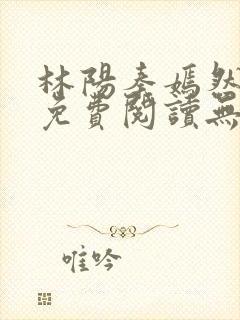 林陽秦嫣然
免費閱讀無
唯吟